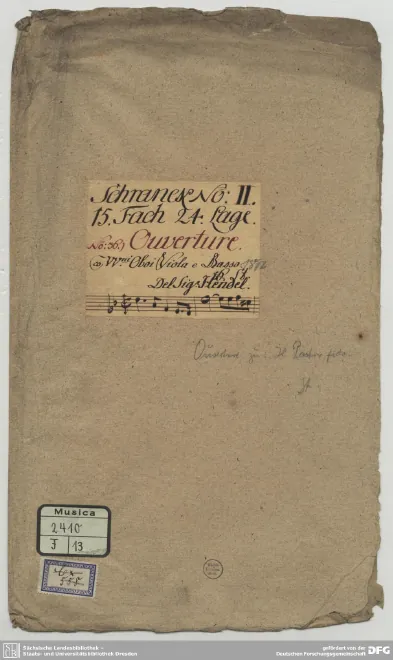 Schranck No: II.
15. Fach 24. Lage.
No: 36.) Ouverture.
Oboi Viola e Basso
Del Sigr Hendel.
Il Pastor fido
Musica
2410
F 13
Sächsische Landesbibliothek –
Staats- und Universitätsbibliothek Dresden
gefördert von der
Deutschen Forschungsgemeinschaft DFG